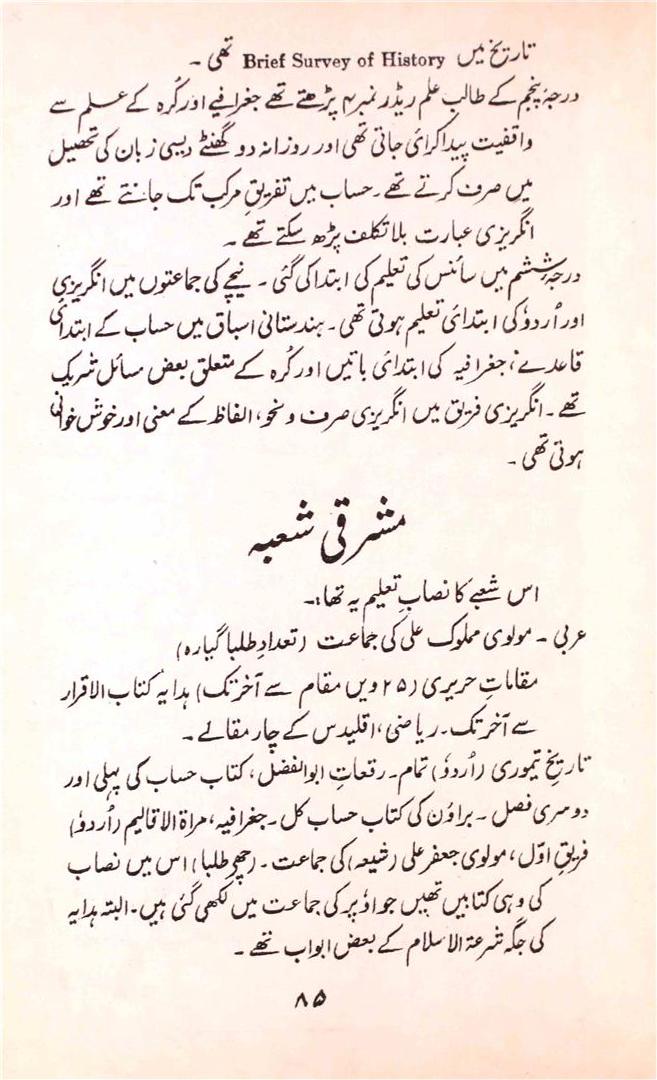 تاریخ میں Brief Survey of History تھی ۔
درجۂ پنجم کے طالب علم ریڈر نمبر ۴ پڑھتے تھے جغرافیے اور کُرہ کے علم سے
واقفیت پیدا کرائی جاتی تھی اور روزانہ دو گھنٹے دیسی زبان کی تحصیل
میں صرف کرتے تھے ۔ حساب میں تفریقِ مرکب تک جانتے تھے اور
انگریزی عبارت بلا تکلف پڑھ سکتے تھے ۔
درجۂ ششم میں سائنس کی تعلیم کی ابتدا کی گئی ۔ نیچے کی جماعتوں میں انگریزی
اور اُردو کی ابتدائی تعلیم ہوتی تھی ۔ ہندستانی اسباق میں حساب کے ابتدائی
قاعدے، جغرافیہ کی ابتدائی باتیں اور کُرہ کے متعلق بعض مسائل شریک
تھے ۔ انگریزی فریق میں انگریزی صرف و نحو، الفاظ کے معنی اور خوش خوانی
ہوتی تھی ۔
مشرقی شعبہ
اس شعبے کا نصابِ تعلیم یہ تھا :۔
عربی ۔ مولوی مملوک علی کی جماعت (تعدادِ طلبا گیارہ)
مقاماتِ حریری (۲۵ ویں مقام سے آخر تک) ہدایہ کتاب الاقرار
سے آخر تک ۔ ریاضی، اقلیدس کے چار مقالے ۔
تاریخِ تیموری (اُردو) تمام ۔ رقعاتِ ابوالفضل، کتاب حساب کی پہلی اور
دوسری فصل ۔ براؤن کی کتاب حساب کل ۔ جغرافیہ، مراۃ الاقالیم (اُردو)
فریقِ اوّل، مولوی جعفر علی (شیعہ) کی جماعت ۔ (چھ طلبا) اس میں نصاب
کی وہی کتابیں تھیں جو اوپر کی جماعت میں لکھی گئی ہیں ۔ البتہ ہدایہ
کی جگہ شرعۃ الاسلام کے بعض ابواب تھے ۔
۸۵